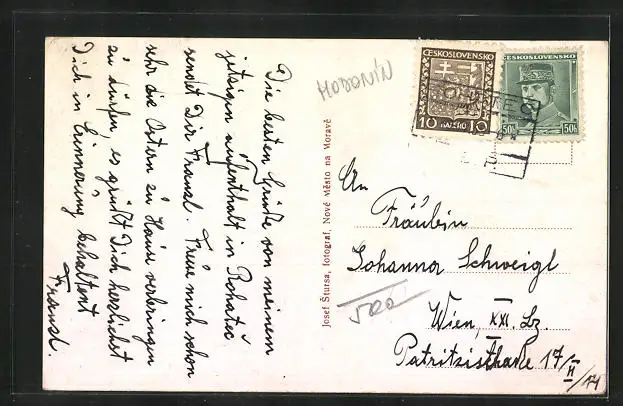 Die besten Grüße von meinem
jetzigen Aufenthalt in Rohatec
sendet Dir Franzl. Freue mich schon
sehr die Ostern zu Hause verbringen
zu dürfen, es grüßt Dich herzlichst
Dich in Erinnerung behaltend
Franzl.
HODONÍN
Josef Štursa, fotograf, Nové Město na Moravě
ČESKOSLOVENSKO
10 HALÉŘŮ 10
ČESKOSLOVENSKO
50h 50h
An
Fräulein
Johanna Schweigl
Wien, XXI. Bz.
Patrizistraße 17/II/14
500